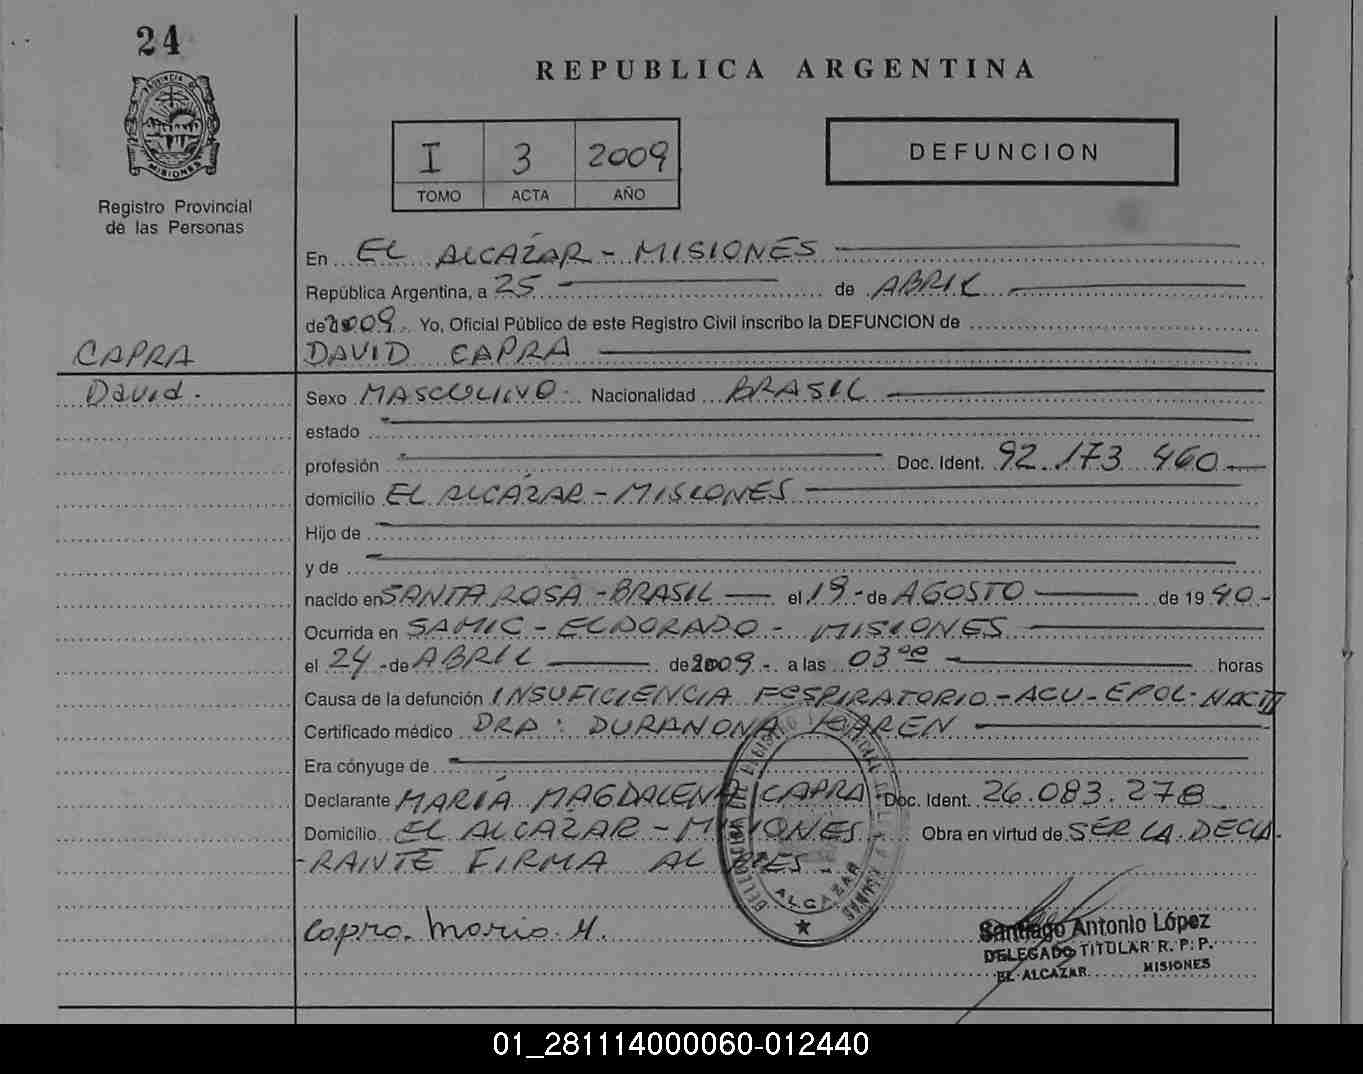 24
PROVINCIA DE
MISIONES
Registro Provincial
de las Personas
REPUBLICA ARGENTINA
I 3 2009
TOMO ACTA AÑO
DEFUNCION
En EL ALCAZAR - MISIONES
República Argentina, a 25 de ABRIL
de 2009. Yo, Oficial Público de este Registro Civil inscribo la DEFUNCION de
CAPRA
DAVID CAPRA
David.
Sexo MASCULINO. Nacionalidad BRASIL
estado
profesión Doc. Ident. 92.173 460
domicilio EL ALCÁZAR - MISIONES
Hijo de
y de
nacido en SANTA ROSA - BRASIL el 19 - de AGOSTO de 19 40.-
Ocurrida en SAMIC - ELDORADO - MISIONES
el 24 - de ABRIL de 2009 - a las 03 00 horas
Causa de la defunción INSUFICIENCIA RESPIRATORIO - ACU - EPOC -
Certificado médico DRA: DURANONA KAREN
Era cónyuge de
Declarante MARÍA MAGDALENA CAPRA Doc. Ident. 26.083.278
Domicilio EL ALCAZAR - MISIONES - Obra en virtud de SER LA DECLA-
-RANTE FIRMA AL
ALCAZAR
Capra. Maria M.
Santiago Antonio López
DELEGADO TITULAR R. P. P.
EL ALCAZAR MISIONES
01_281114000060-012440